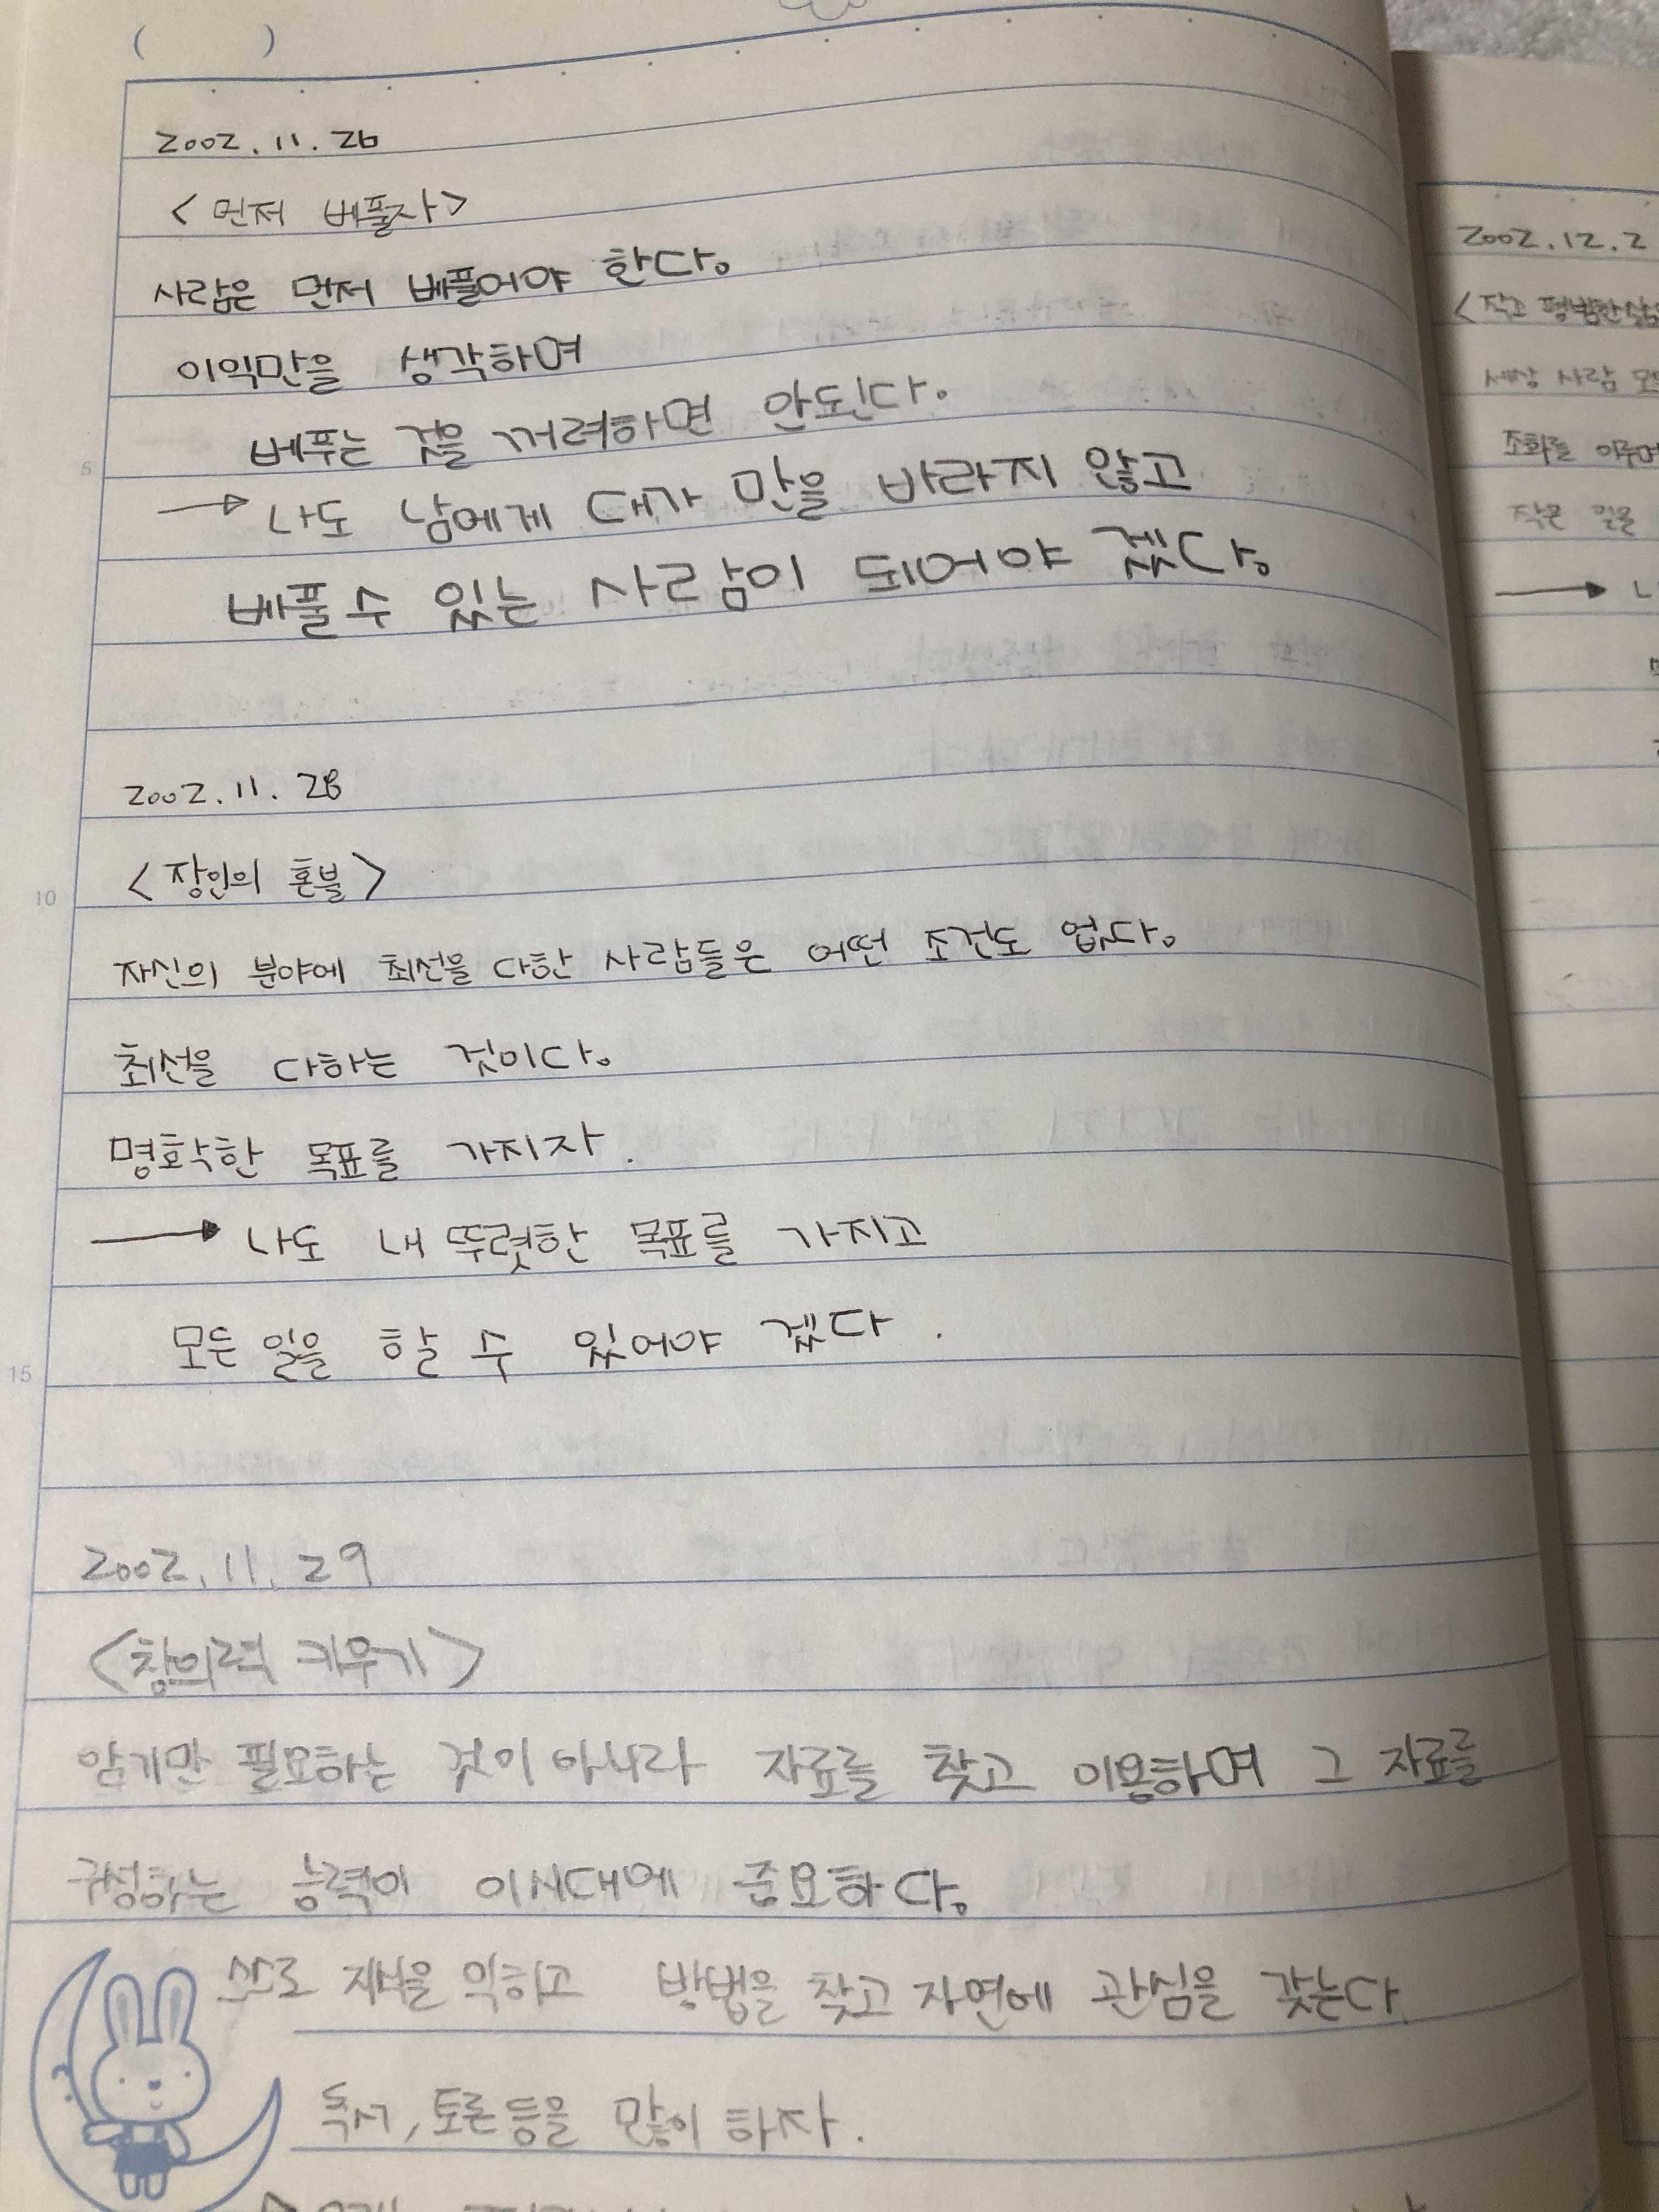 ( )
2002. 11. 26
<먼저 베풀자>
사람은 먼저 베풀어야 한다.
이익만을 생각하며
베푸는 것을 꺼려하면 안된다.
→ 나도 남에게 대가 만을 바라지 않고
베풀 수 있는 사람이 되어야 겠다.
2002. 11. 28
<장인의 혼불>
자신의 분야에 최선을 다한 사람들은 어떤 조건도 없다.
최선을 다하는 것이다.
명확한 목표를 가지자.
→ 나도 내 뚜렷한 목표를 가지고
모든 일을 할 수 있어야 겠다.
2002. 11. 29
<창의력 키우기>
암기만 필요하는 것이 아니라 자료를 찾고 이용하며 그 자료를
구성하는 능력이 이시대에 중요하다.
스스로 지식을 익히고 방법을 찾고 자연에 관심을 갖는다
독서, 토론 등을 많이 하자.
5
10
15
2002. 12. 2
<작고 평범한 삶
세상 사람
조화를 이루며
작은 일을
→